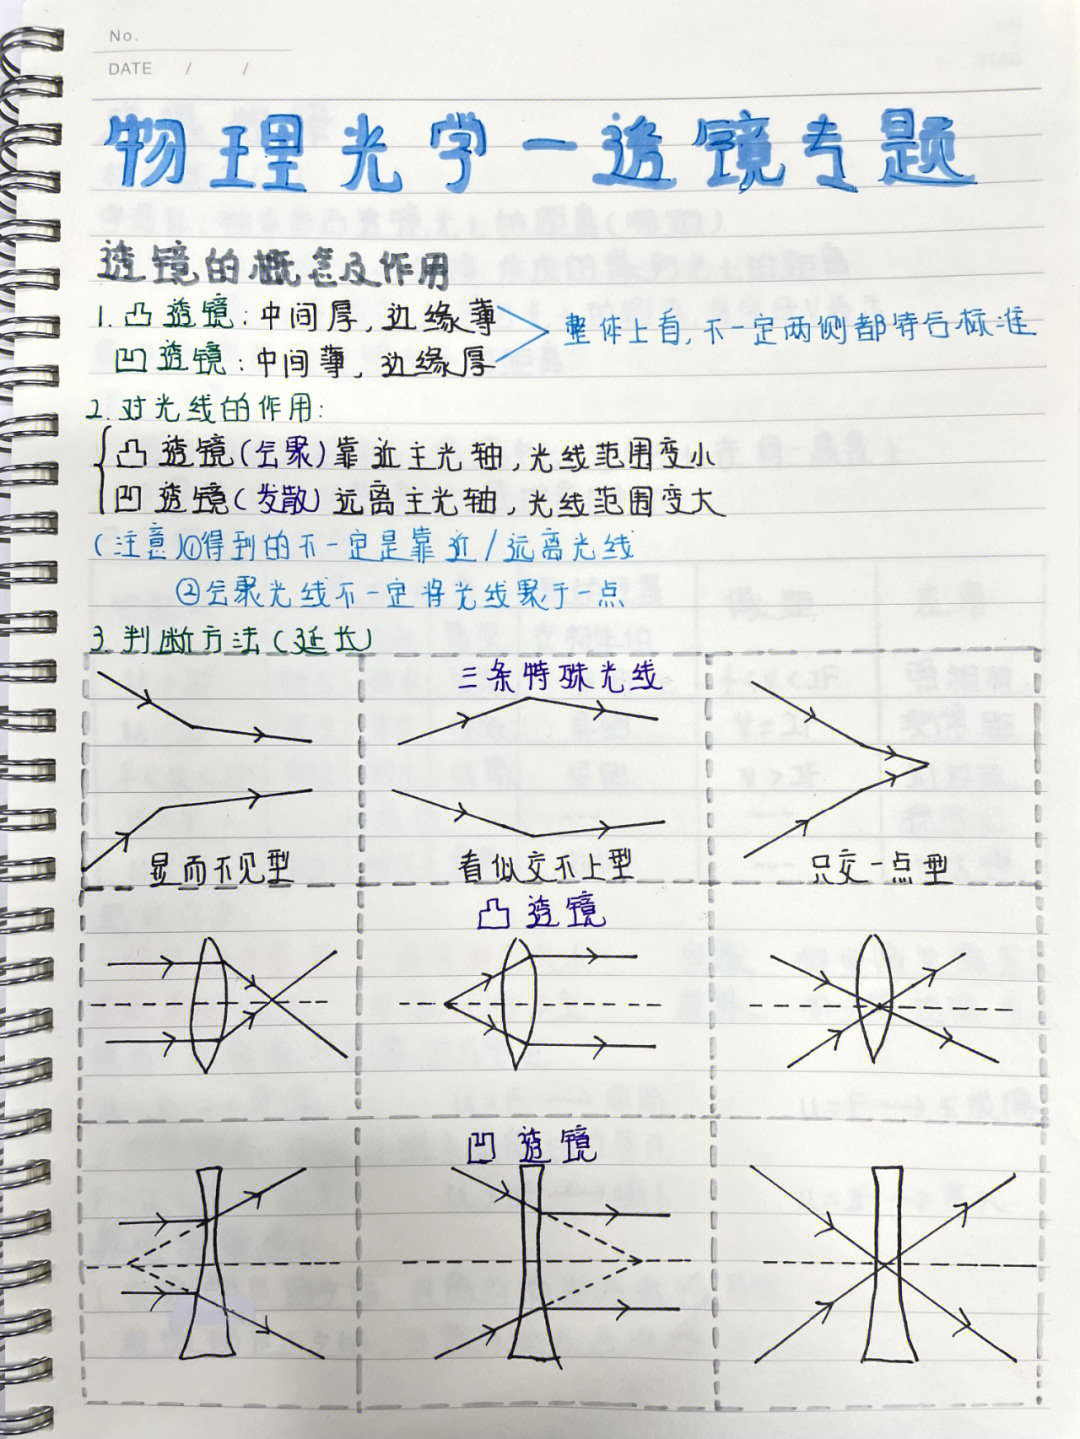 No.
DATE / /
物理光学一透镜专题
透镜的概念及作用
1. 凸透镜：中间厚，边缘薄
凹透镜：中间薄，边缘厚
整体上看，不一定两侧都符合标准
2. 对光线的作用：
凸透镜(会聚)靠近主光轴，光线范围变小
凹透镜(发散)远离主光轴，光线范围变大
(注意)①得到的不一定是靠近/远离光线
②会聚光线不一定将光线聚于一点
3. 判断方法(延长)
三条特殊光线
显而不见型 看似交不上型 只交一点型
凸透镜
凹透镜